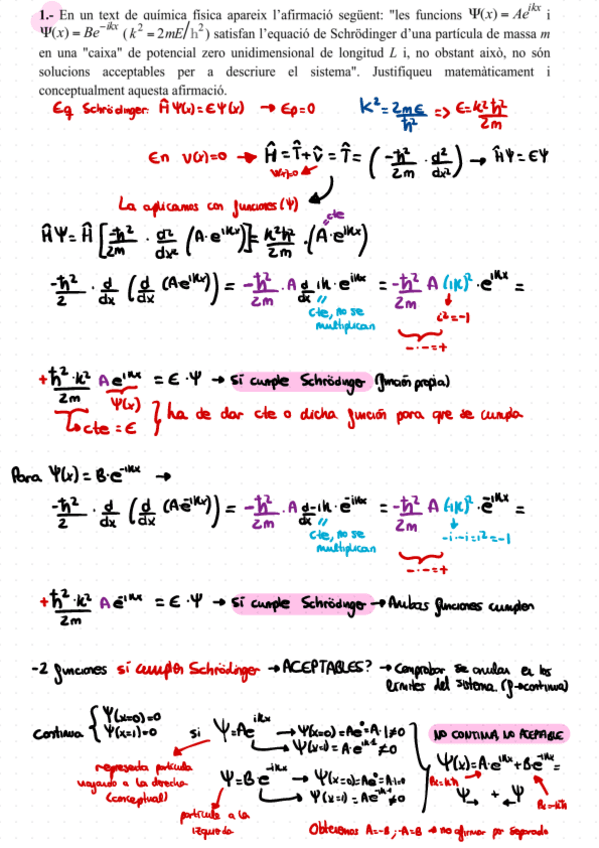 1.- En un text de química física apareix l'afirmació següent: "les funcions Ψ(x) = Ae^{ikx} i
Ψ(x) = Be^{-ikx} (k² = 2mE/ħ²) satisfan l'equació de Schrödinger d'una partícula de massa m
en una "caixa" de potencial zero unidimensional de longitud L i, no obstant això, no són
solucions acceptables per a descriure el sistema". Justifiqueu matemàticament i
conceptualment aquesta afirmació.
Eq Schrödinger: ĤΨ(x)=EΨ(x) → Ep=0 k²=2mE/ħ² => E=k²ħ²/2m
En V(x)=0 → Ĥ=T̂+V̂=T̂=(-ħ²/2m · d²/dx²) → ĤΨ=EΨ
V(x)=0
La aplicamos con funciones (Ψ)
cte
ĤΨ=Ĥ[-ħ²/2m · d²/dx² (A·e^{ikx})]=k²ħ²/2m · (A·e^{ikx})
-ħ²/2 · d/dx (d/dx (Ae^{ikx})) = -ħ²/2m · A d/dx ik·e^{ikx} = -ħ²/2m A (ik)²·e^{ikx} =
cte, no se multiplican
i²=-1
-·-=+
+ħ²·k²/2m A e^{ikx} = E·Ψ → sí cumple Schrödinger (función propia)
Ψ(x)
cte = E
ha de dar cte o dicha función para que se cumpla
Para Ψ(x)=B·e^{-ikx} →
-ħ²/2 · d/dx (d/dx (Ae^{-ikx})) = -ħ²/2m · A d/dx -ik·e^{-ikx} = -ħ²/2m A (-ik)²·e^{-ikx} =
cte, no se multiplican
-i·-i=i²=-1
-·-=+
+ħ²·k²/2m A e^{-ikx} = E·Ψ → sí cumple Schrödinger → Ambas funciones cumplen
-2 funciones sí cumplen Schrödinger → ACEPTABLES? → Comprobar se anulan en los
límites del sistema. (→continua)
Continua { Ψ(x=0)=0
Ψ(x=1)=0
si Ψ=Ae^{ikx} → Ψ(x=0)=Ae⁰=A·1≠0
→ Ψ(x=1)=A·e^{ik·1}≠0
NO CONTINUA, NO ACEPTABLE
representa partícula
viajando a la derecha
(conceptual)
Ψ=B·e^{-ikx} → Ψ(x=0)=Ae⁰=A·1≠0
→ Ψ(x=1)=Ae^{-ik·1}≠0
partícula a la
izquierda
Ψ(x)=A·e^{ikx}+Be^{-ikx}=
Ψ→ + ←Ψ
Obtenemos A=-B ; -A=B → no afirmar por separado